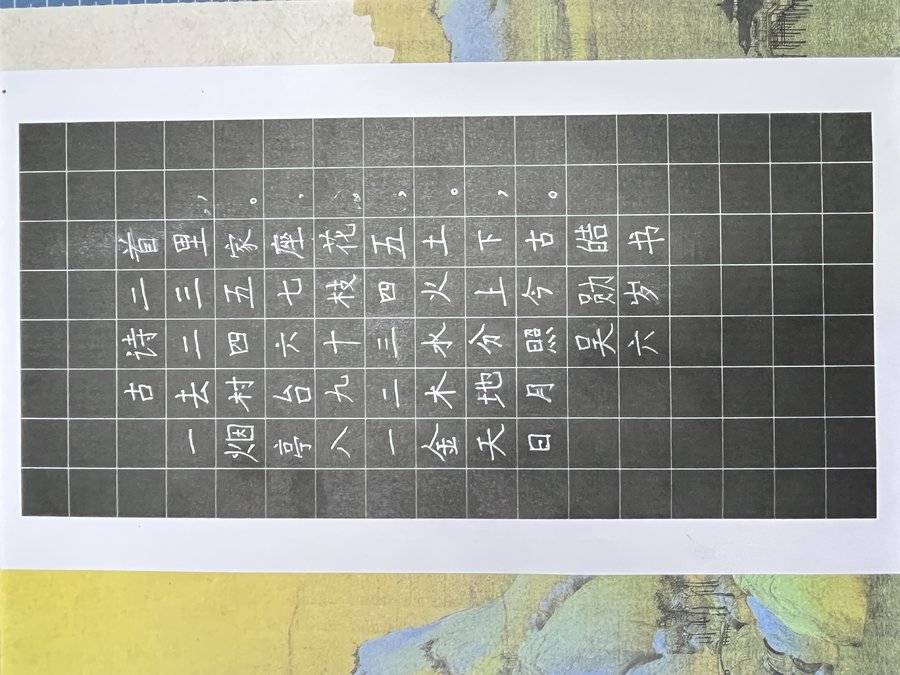 古诗二首
一去二三里，
烟村四五家。
亭台六七座，
八九十枝花。
一二三四五，
金木水火土。
天地分上下，
日月照今古。
吴勋皓
六岁书